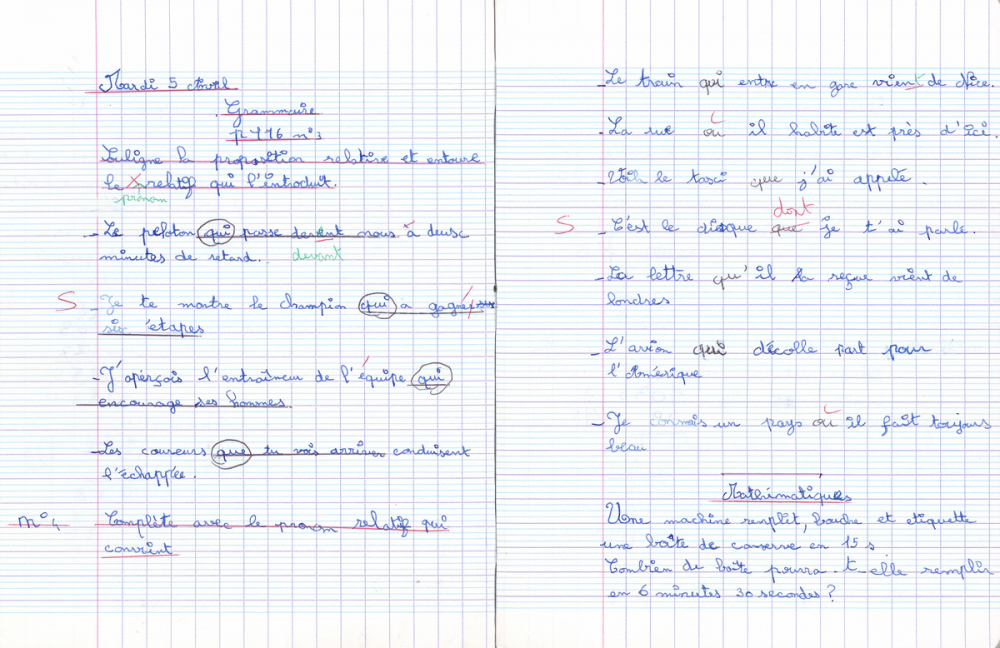 Mardi 5 Avril
Grammaire
p 116 n° 3
Souligne la proposition relative et entoure
le relatif qui l'introduit.
pronom
_ Le peloton qui passe devent nous à deux
minutes de retard. devant
S - Je te montre le champion qui a gagné
six étapes
- J'apérçois l'entraîneur de l'équipe qui
encourage ses hommes.
- Les coureurs que tu vois arriver conduisent
l'échappée.
n° 4 Complète avec le pronom relatif qui
convient
_ Le train qui entre en gare vient de Nice.
- La rue où il habite est près d'ici.
- Voilà le taxi que j'ai appelé.
dont
S - C'est le disque que je t'ai parlé.
- La lettre qu'il a reçue vient de
londres
_ L'avion qui décolle part pour
l'Amérique
_ Je connais un pays où il fait toujours
beau
Mathématiques
Une machine remplit, bouche et etiquette
une boîte de conserve en 15 s
Combien de boîte pourra-t-elle remplir
en 6 minutes 30 secondes ?